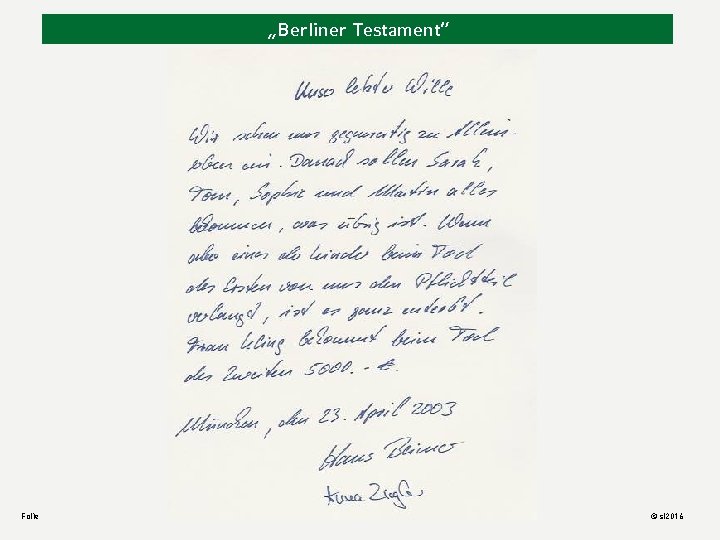 „Berliner Testament“
Unser letzter Wille
Wir setzen uns gegenseitig zu Allein-
erben ein. Danach sollen Sarah,
Tom, Sophie und Martin alles
bekommen, was übrig ist. Wenn
aber eines der Kinder beim Tod
des Ersten von uns den Pflichtteil
verlangt, ist es ganz enterbt.
Frau Kling bekommt beim Tod
des Zweiten 5000.- €.
München, den 23. April 2003
Hans Beimer
Anna Ziegler
Folie
© sl2016